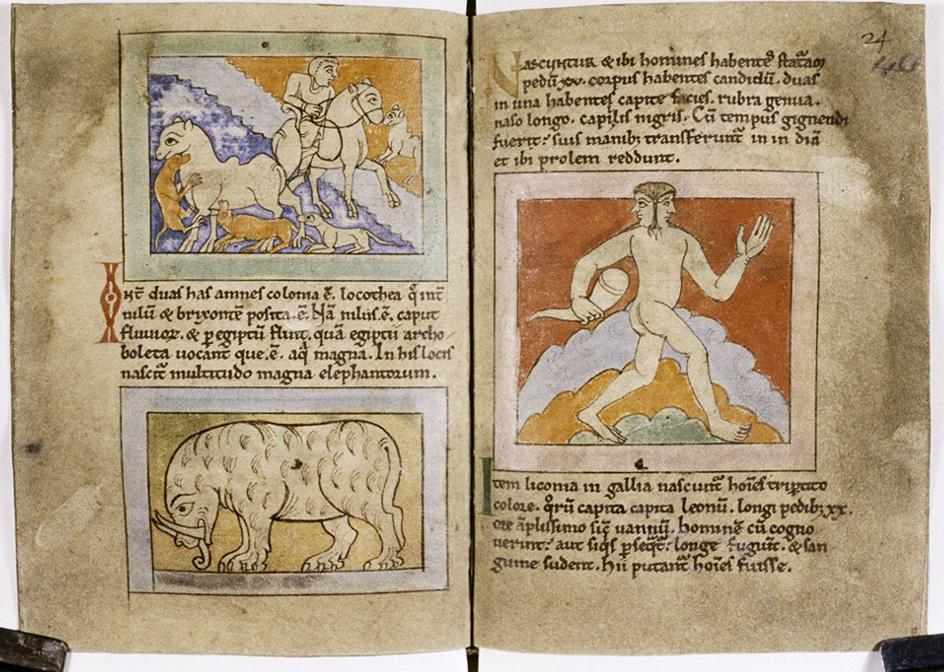 Int̄ duas has amnes colonia ē. locothea q̊ int̄
nilū & brixontē posita.ē. Nā nilus.ē. caput
fluuioꝝ. & ꝑ egiptū fluit. quā egiptii archo
boleta uocant que.ē. aq̄ magna. In his locis
nascit̄ multitudo magna elephantorum.
24
Nascuntur & ibi homines habentes statura
pedū xv. corpus habentes candidū. duas
in una habentes capite facies. rubra genua.
naso longo. capillis nigris. Cū tempus gignendi
fuerit: suis manibꝰ transferunt in in diā
et ibi prolem reddunt.
Item liconia in gallia nascunt̄ hoı̄es tripertito
colore. qͦrū capita capita leonū. longi pedibꝫ xx.
ore āplissimo sic̄ uannū. hominē cū cogno
uerint: aut siq̄s ꝑseqͥt̄: longe fugiūt. & san
guine sudent. Hii putant̄ hoı̄es fuisse.